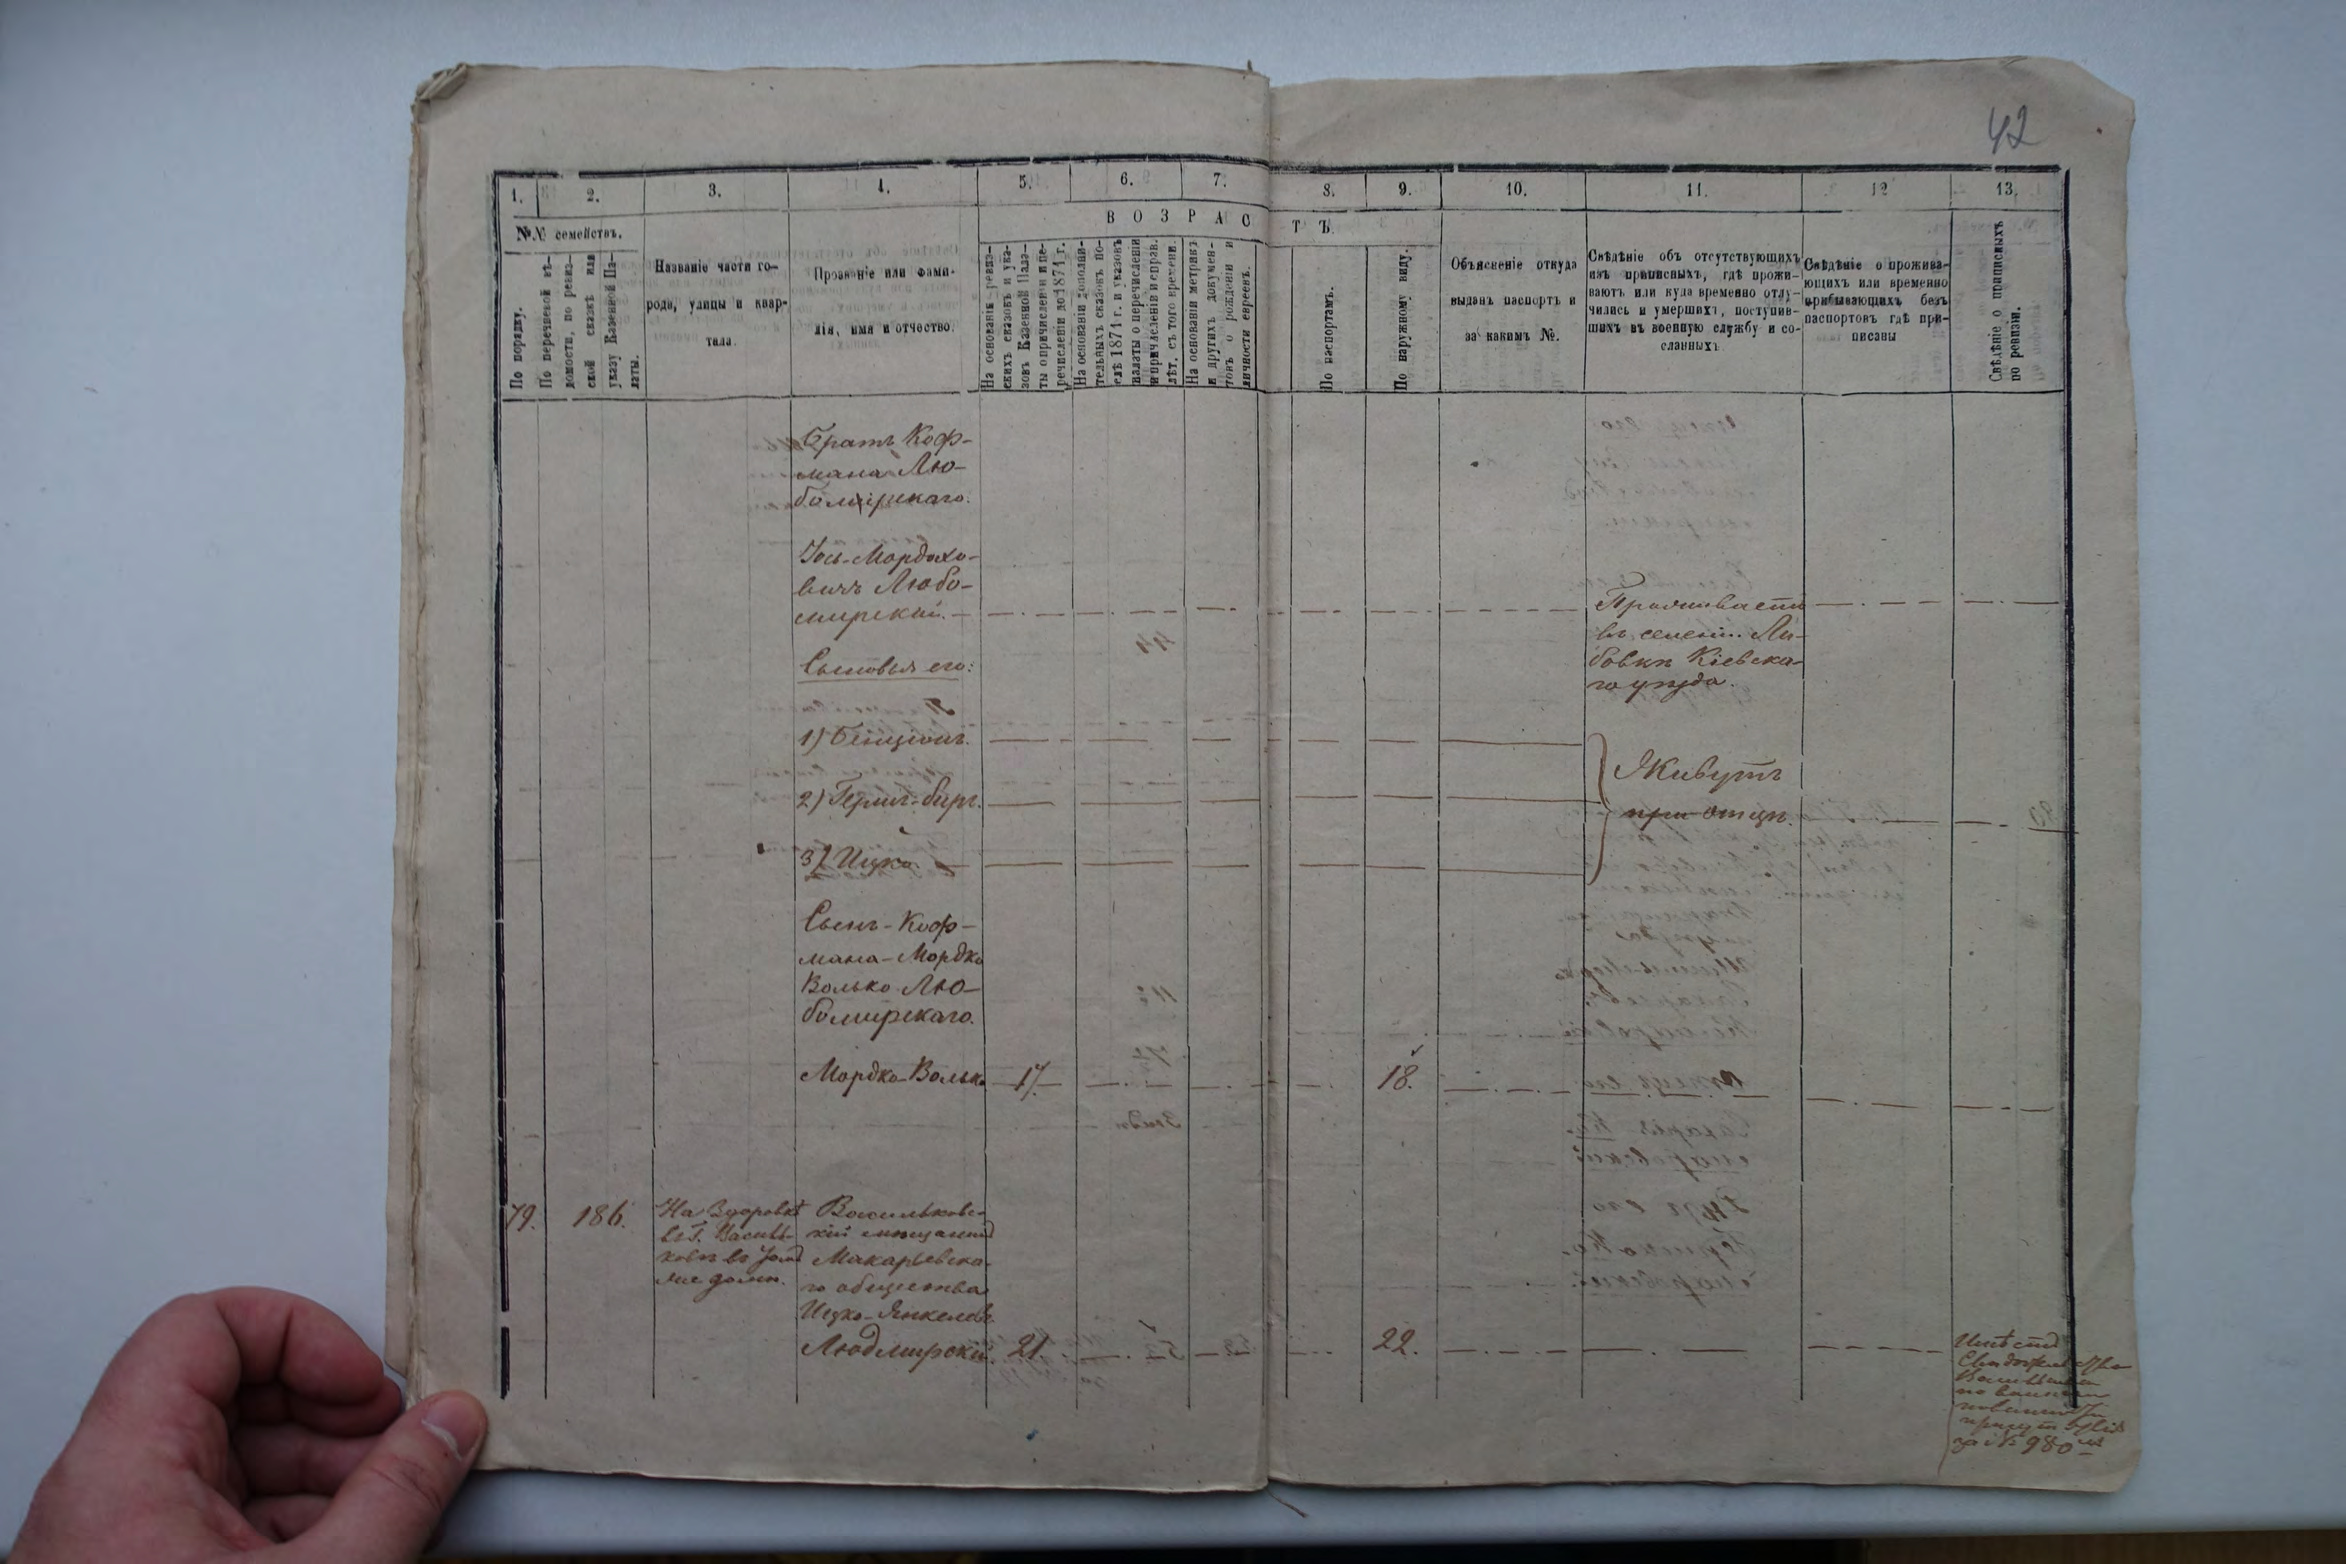 42
1.
2.
3.
4.
5.
6.
7.
8.
9.
10.
11.
12
13.
№№ семействъ.
По порядку.
По перечневой вѣ-
домости, по ревиз-
ской сказкѣ или
указу Казенной Па-
латы.
Названіе части го-
рода, улицы и квар-
тала.
Прозваніе или фами-
лія, имя и отчество.
ВОЗРАСТЪ.
На основаніи ревиз-
скихъ сказокъ и ука-
зовъ Казенной Пала-
ты о причисленіи и пе-
речисленіи до 1871 г.
На основаніи дополни-
тельныхъ сказокъ по-
слѣ 1871 г. и указовъ
палаты о перечисленіи
и причисленіи и справ.
лѣт. съ того времени.
На основаніи метрикъ
и другихъ докумен-
товъ о рожденіи и
личности евреевъ.
По паспортамъ.
По наружному виду.
Объясненіе откуда
выданъ паспортъ и
за какимъ №.
Свѣдѣніе объ отсутствующихъ
изъ приписныхъ, гдѣ прожи-
ваютъ или куда временно отлу-
чились и умершихъ, поступив-
шихъ въ военную службу и со-
сланныхъ
Свѣдѣніе о прожива-
ющихъ или временно
прибывающихъ безъ
паспортовъ гдѣ при-
писаны
Свѣдѣніе о приписныхъ
по ревизіи.
Братъ Коф-
мана Лю-
бомирскаго.
Іось-Мордахо-
вичъ Любо-
мирскій.
Проживаетъ
въ селеніи
Кіевска-
го уѣзда.
Сыновья его:
1) Бенціонъ.
2) Гершъ-беръ.
3) Ицко.
Живутъ
при отцѣ.
Сынъ-Коф-
мана-Мордко
Волько Лю-
бомирскаго.
Мордко-Волько 17. 18.
79. 186.
На Здоровкѣ
въ г. Василь-
ковѣ въ
домѣ.
Васильковс-
кій мѣщанинъ
Макарьевска-
го общества
Ицко-Янкелев.
Людмирскій. 21. 22.
Имѣетъ
по воинской
повинности
за № 980